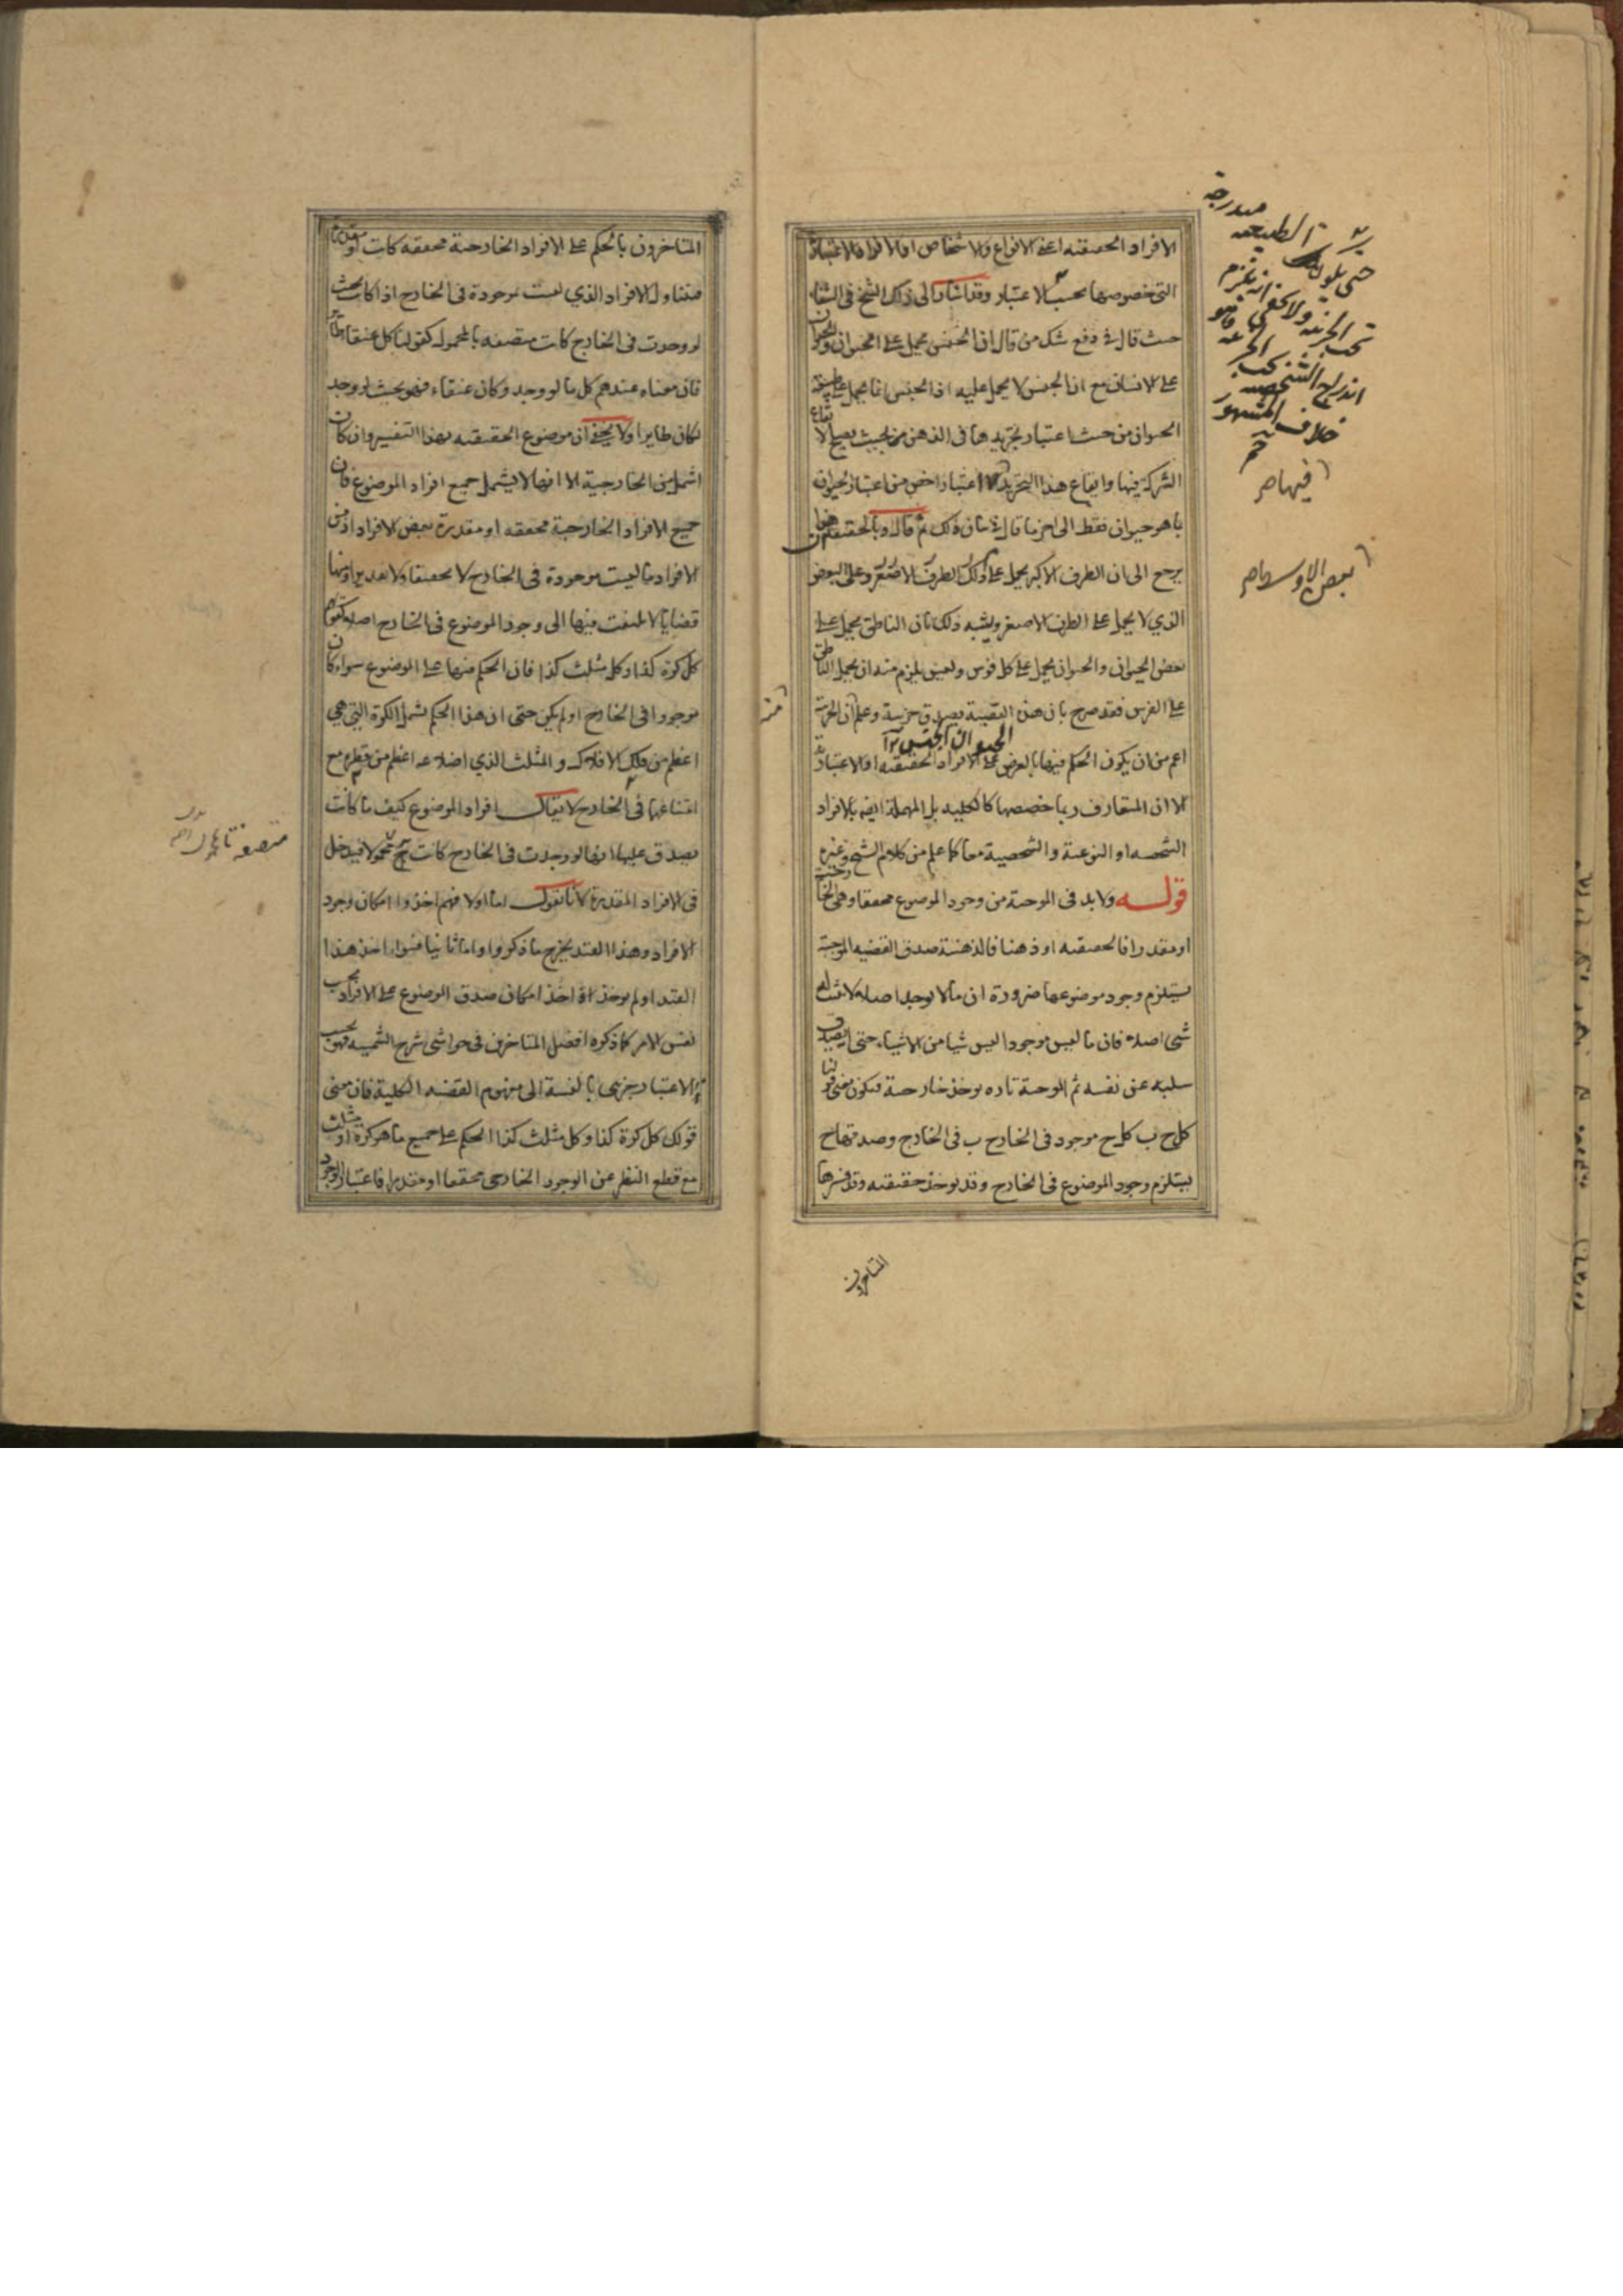 الافراد الحقيقيه اعنى الانواع والاشخاص او الافراد الاعتبارية
التى خصوصها بحسب الاعتبار وقد اشار الى ذلك الشيخ فى الشفا
حيث قال فى دفع شك من قال ان الجنس يحمل على الحيوان والحيوان
على الانسان مع ان الجنس لا يحمل عليه اذ الجنس انما يحمل على طبيعة
الحيوان من حيث اعتبار تجريدها فى الذهن بحيث يصلح لايقاع
الشركة فيها وايقاع هذا التجريد اعتبار اخص من اعتبار الحيوان
بما هو حيوان فقط الى اخر ما قال فى بيان ذلك ثم قال وبالحقيقة هذا
يرجع الى ان الطرف الاكبر يحمل على ذلك الطرف الاصغر وعلى البعض
الذي لا يحمل على الطرف الاصغر ويشبه ذلك بان الناطق يحمل على
بعض الحيوان والحيوان يحمل على كل فرس وليس يلزم منه ان يحمل الناطق
على الفرس فقد صرح بان هذه القضية يصدق جزئية وعلم ان الجزئية
الحيوان الجنس
اعم من ان يكون الحكم فيها بالعرض على الافراد الحقيقيه او الاعتبارية
الا ان المتعارف ربما خصصها كالكلية بل المهملة ايضا بالافراد
الشخصيه او النوعية والشخصية معا كما علم من كلام الشيخ وغيره
قوله ولا بد فى الموجبة من وجود الموضوع محققا وهى الخارجية
او مقدرا فالحقيقيه او ذهنا فالذهنية صدق القضيه الموجبة
يستلزم وجود موضوعها ضرورة ان ما لا يوجد اصلا لا يثبت له
شى اصلا فان ما ليس موجودا ليس شيا من الاشياء حتى يصدق
سلبه عن نفسه ثم الموجبة تاره يوخذ خارجية فيكون معنى قولنا
كل ج ب كل ج موجود فى الخارج ب فى الخارج وصدقها ح
يستلزم وجود الموضوع فى الخارج وقد يوخذ حقيقيه وقد فسرها
المتاخرون
الطبيعه مندرجة
تحت الجزئيه ولا يخفى انه يلزم
اندراج الشخصيه تحت الجزئيه
خلاف المشهور
فيها صح
بعض الاوسط صح
المتاخرون بالحكم على الافراد الخارجية محققه كانت او مقدرة
فيتناول الافراد الذي ليست موجودة فى الخارج اذا كانت بحيث
لو وجدت فى الخارج كانت متصفه بالمحمول كقولنا كل عنقاء طائر
فان معناه عندهم كل ما لو وجد وكان عنقاء فهو بحيث لو وجد
لكان طايرا ولا يخفى ان موضوع الحقيقيه بهذا التفسير وان كان
اشمل من الخارجية الا انها لا يشمل جميع افراد الموضوع فان
جميع الافراد الخارجية محققه او مقدرة بعض الافراد اذ من
الافراد ما ليست موجودة فى الخارج لا تحقيقا ولا تقديرا ومنها
قضايا لا يلتفت فيها الى وجود الموضوع فى الخارج اصلا كقولهم
كل كرة كذا وكل مثلث كذا فان الحكم فيها على الموضوع سواء كان
موجودا فى الخارج او لم يكن حتى ان هذا الحكم يشمل الكرة التى هى
اعظم من فلك الافلاك والمثلث الذي اضلاعه اعظم من قطره مع
امتناعها فى الخارج لا يقال افراد الموضوع كيف ما كانت
يصدق عليها انها لو وجدت فى الخارج كانت محمولا فيدخل
فى الافراد المقدرة لانا نقول اما اولا فهم اخذوا امكان وجود
الافراد وهذا القيد يخرج ما ذكروا واما ثانيا فسواء اخذ هذا
القيد او لم يوخذ او اخذ امكان صدق الموضوع على الافراد بحسب
نفس الامر كما ذكره افضل المتاخرين فى حواشى شرح الشمسيه فهو بحسب
الاعتبار جزئى بالنسبة الى مفهوم القضيه الكلية فان معنى
قولك كل كرة كذا وكل مثلث كذا الحكم على جميع ما هو كرة او مثلث
مع قطع النظر عن الوجود الخارجى محققا او مقدرا فاعتبار الوجود